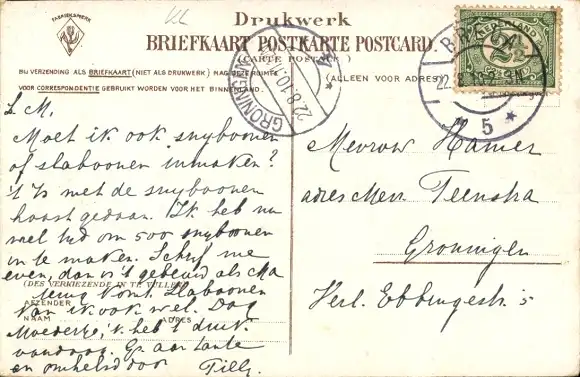 FABRIEKSMERK
Drukwerk
BRIEFKAART POSTKARTE POSTCARD.
(CARTE POSTALE)
BIJ VERZENDING ALS BRIEFKAART (NIET ALS DRUKWERK) MAG DEZE RUIMTE
VOOR CORRESPONDENTIE GEBRUIKT WORDEN VOOR HET BINNENLAND.
(ALLEEN VOOR ADRES)
NEDERLAND
2½
BREDA
5
GRONINGEN
22.8.10.
L. M.
Moet ik ook snyboonen
of slaboonen inmaken?
't Is met de snyboonen
haast gedaan. Ik heb nu
wel tyd om 500 snyboonen
in te maken. Schryf me
even, dan is 't gebeurd als Ma
terug komt. Slaboonen
kan ik ook wel. Dag
Moedertje, 'k heb 't druk
vandaag. Gr. aan tante
en omhelsd door Tilly.
(DES VERKIEZENDE IN TE VULLEN)
AFZENDER
NAAM ADRES
Mevrouw Hamer
adres Mevr. Teenstra
Groningen
Verl. Ebbingestr. 5